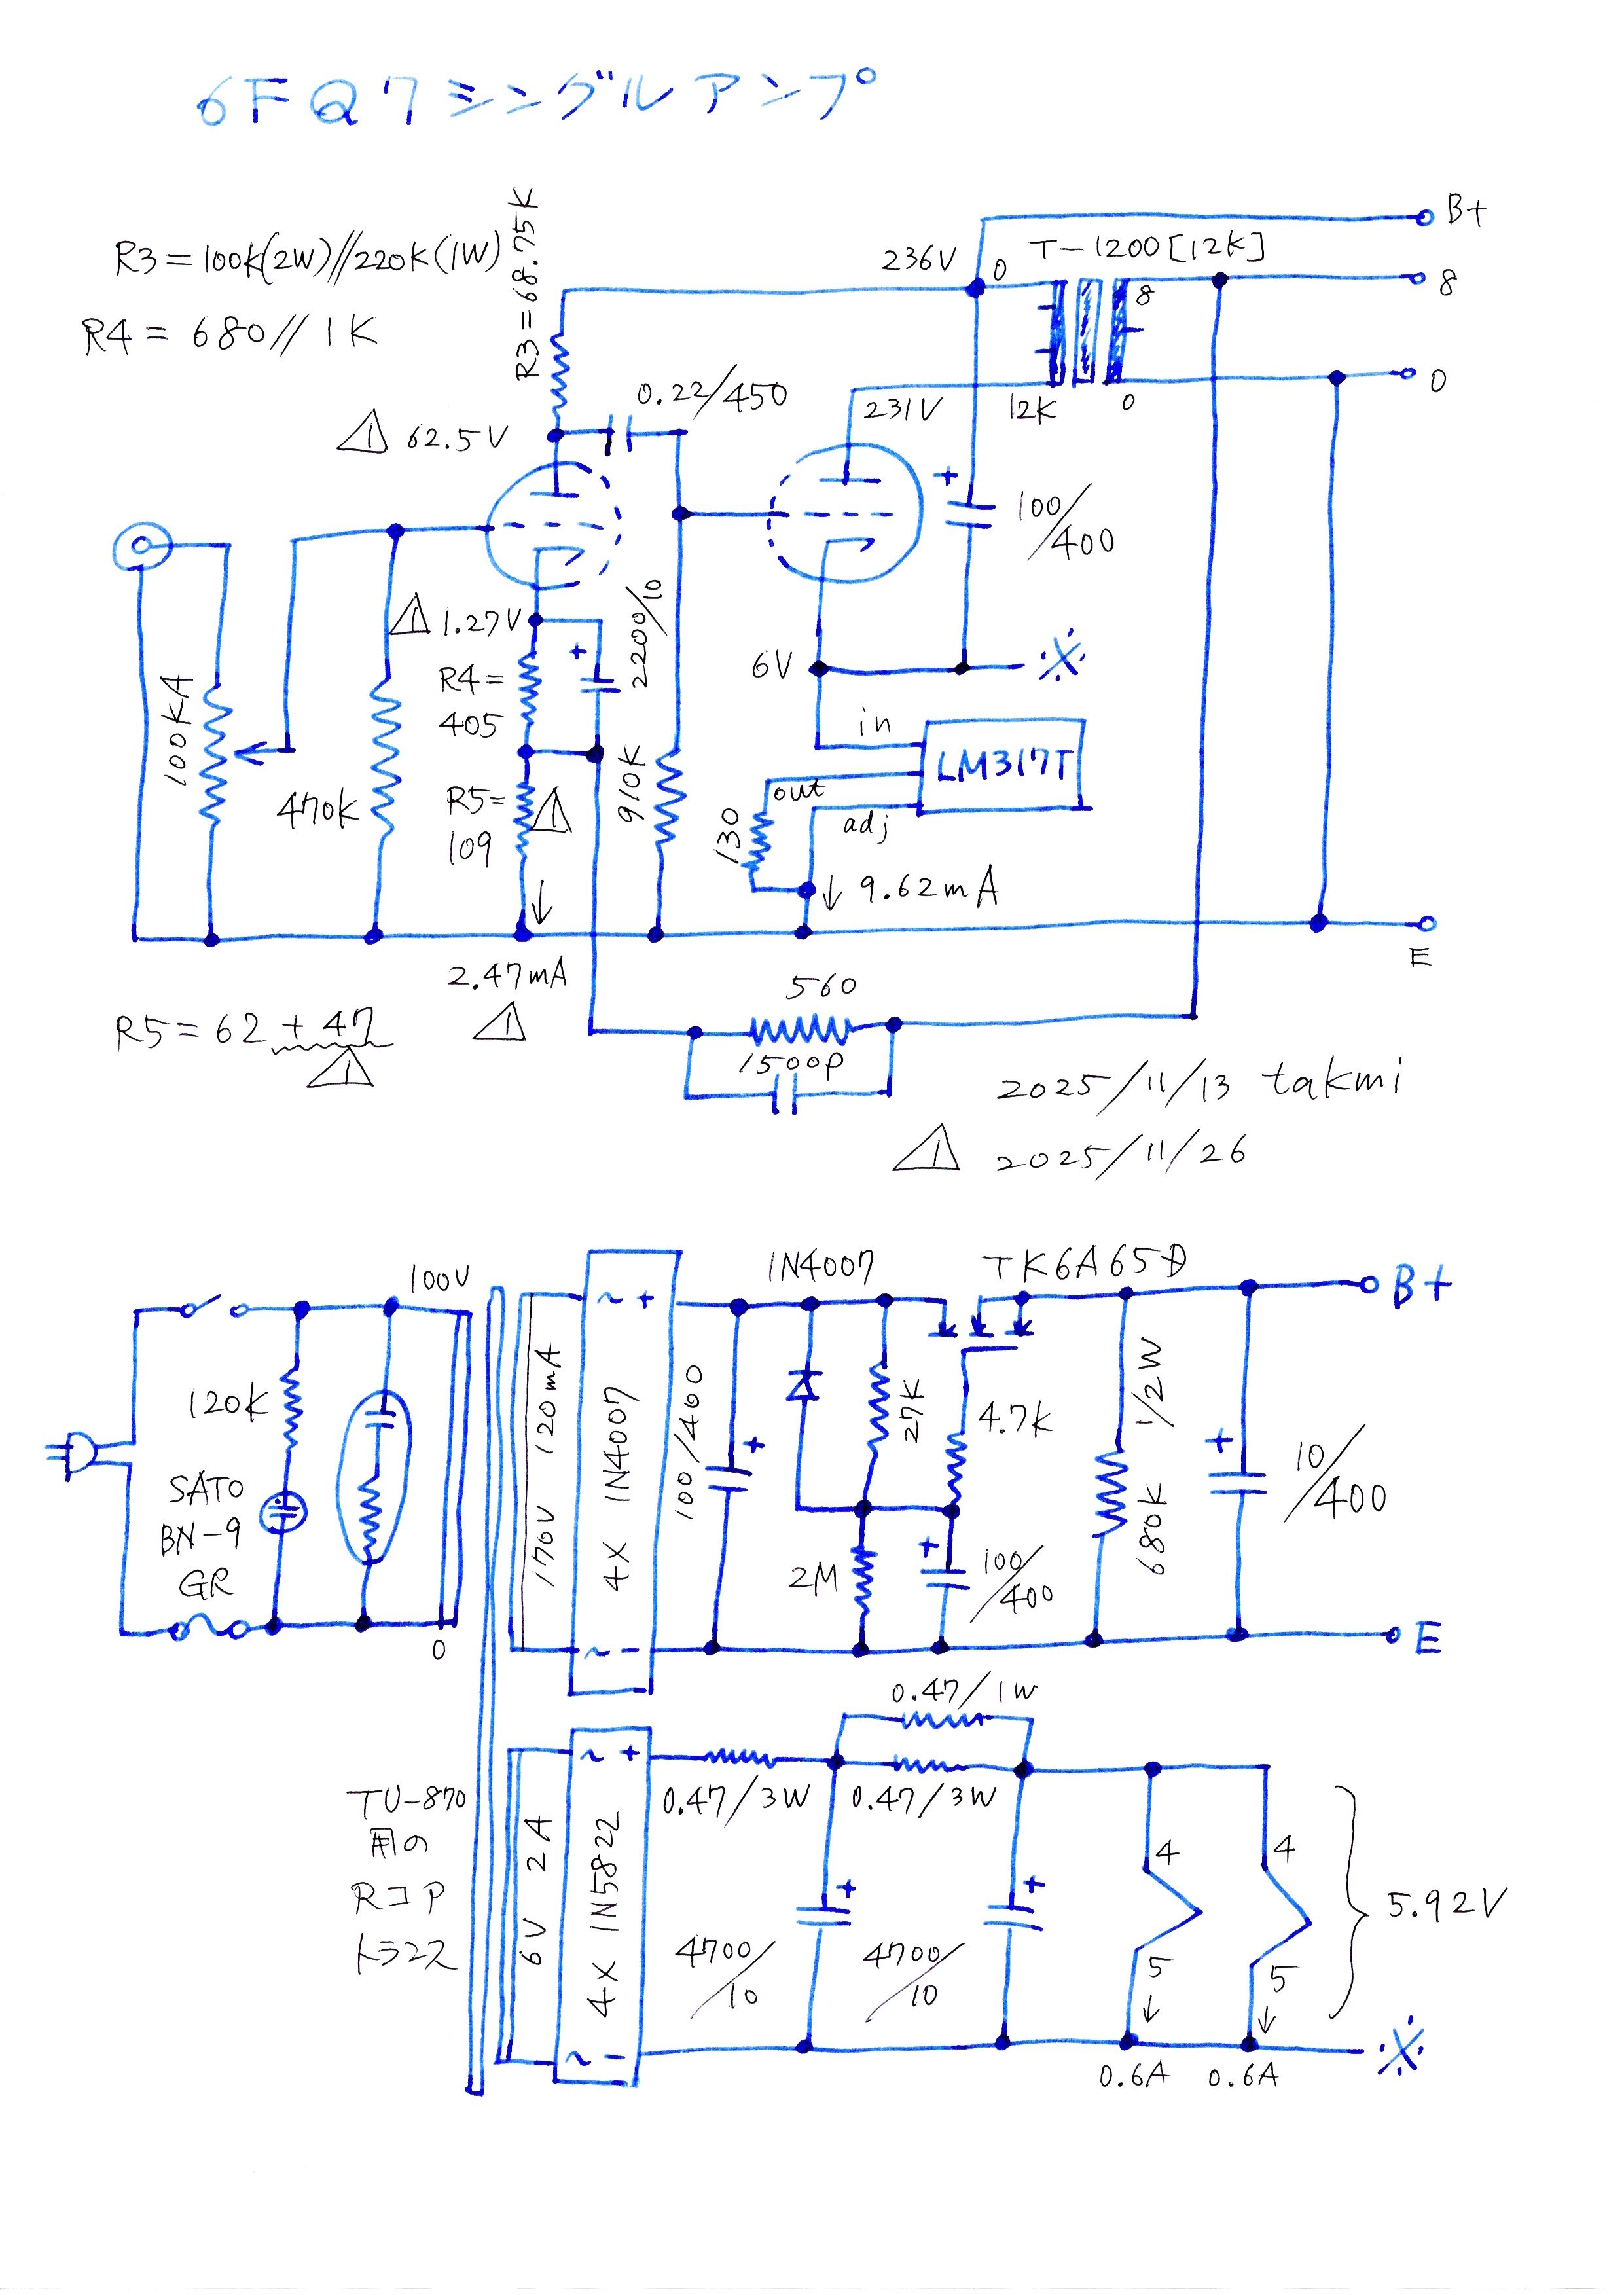 6FQ7シングルアンプ
R3=100k(2W)//220k(1W)
R4= 680// 1K
R3=68.75K
236V
0
T-1200[12K]
B+
8
8
0
0
12K
231V
0.22/450
⚠ 62.5V
100/400
⚠ 1.27V
2200/10
6V
※
R4=
405
in
LM317T
out
adj
130
100KA
470k
R5=
109
⚠
910K
↓ 9.62mA
E
2.47mA
⚠
560
1500P
R5=62 + 47
⚠
2025/11/13 takmi
⚠ 2025/11/26
100V
1N4007
TK6A65D
B+
~ +
120k
170V 120mA
4X 1N4007
100/400
27K
4.7k
1/2W
680k
10/400
SATO
BN-9
GR
2M
100/400
0
~ -
E
0.47/1W
~ +
0.47/3W
0.47/3W
TU-870
用の
Rコア
トランス
6V 2A
4X 1N5822
4700/10
4700/10
4
4
5
5
5.92V
~ -
0.6A
0.6A
※